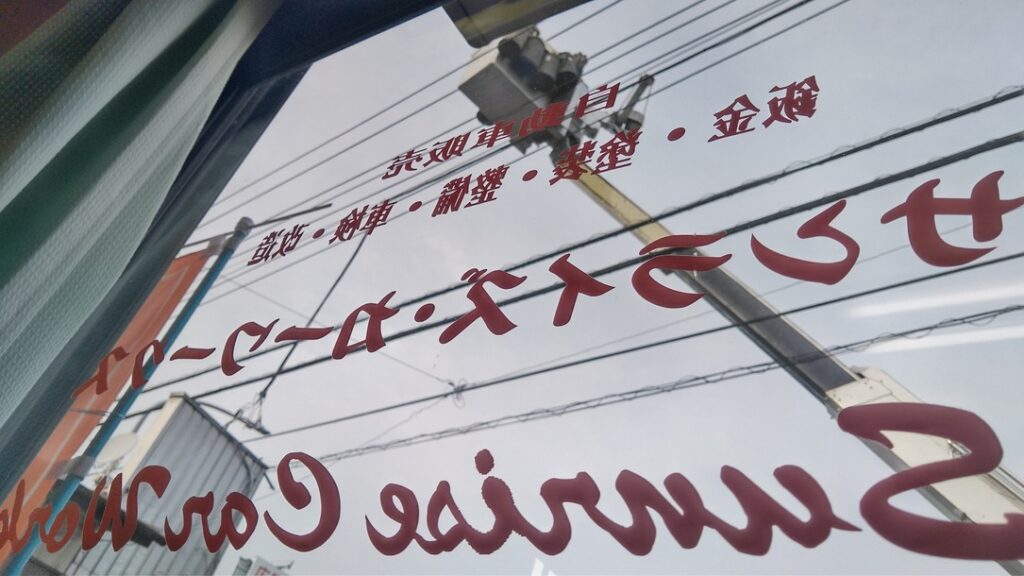 自動車販売
鈑金・塗装・整備・車検・改造
サンライズ・カーワークス
Sunrise Car Works